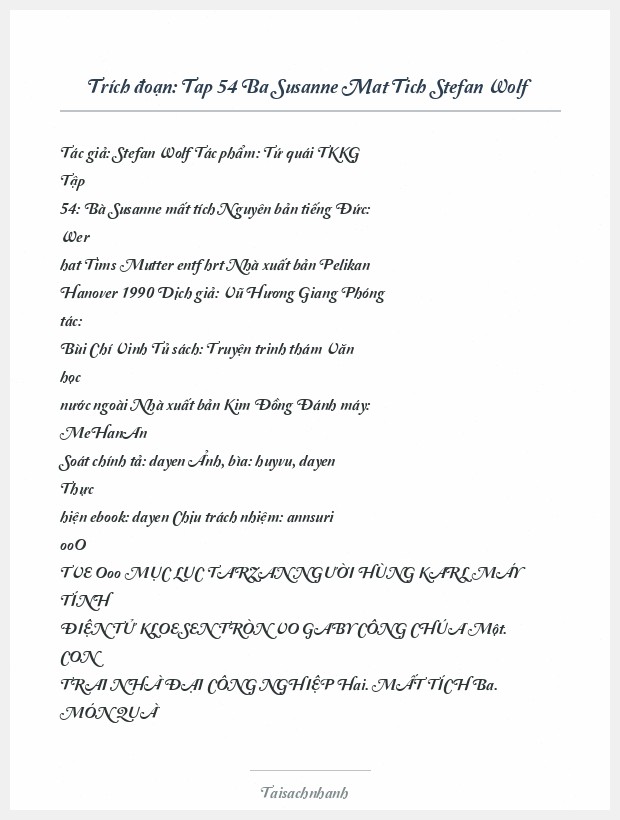 Trích đoạn: Tap 54 Ba Susanne Mat Tich Stefan Wolf
Tác giả: Stefan Wolf Tác phẩm: Tứ quái TKKG
Tập
54: Bà Susanne mất tích Nguyên bản tiếng Đức:
Wer
hat Tims Mutter entf hrt Nhà xuất bản Pelikan
Hanover 1990 Dịch giả: Vũ Hương Giang Phóng
tác:
Bùi Chí Vinh Tủ sách: Truyện trinh thám Văn
học
nước ngoài Nhà xuất bản Kim Đồng Đánh máy:
MeHanAn
Soát chính tả: dayen Ảnh, bìa: huyvu, dayen
Thực
hiện ebook: dayen Chịu trách nhiệm: annsuri
ooO
TVE Ooo MỤC LỤC TARZAN NGƯỜI HÙNG KARL MÁY
TÍNH
ĐIỆN TỬ KLOESEN TRÒN VO GABY CÔNG CHÚA Một.
CON
TRAI NHÀ ĐẠI CÔNG NGHIỆP Hai. MẤT TÍCH Ba.
MÓN QUÀ
Taisachnhanh